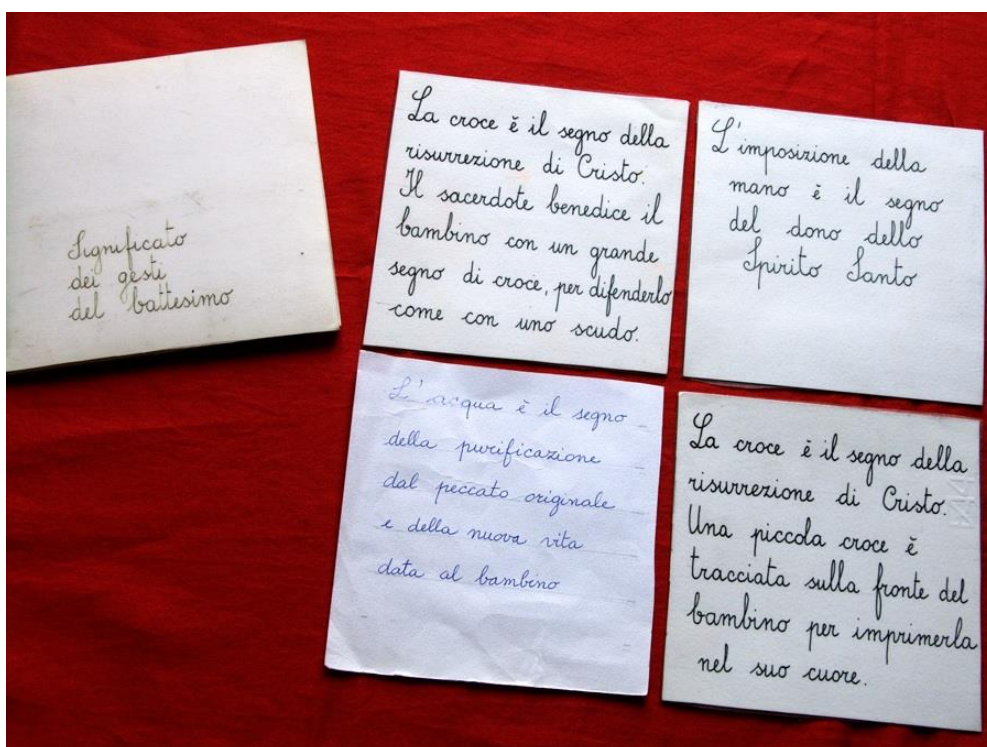 Significato
dei gesti
del battesimo
La croce è il segno della
risurrezione di Cristo.
Il sacerdote benedice il
bambino con un grande
segno di croce, per difenderlo
come con uno scudo.
L'imposizione della
mano è il segno
del dono dello
Spirito Santo
L'acqua è il segno
della purificazione
dal peccato originale
e della nuova vita
data al bambino
La croce è il segno della
risurrezione di Cristo.
Una piccola croce è
tracciata sulla fronte del
bambino per imprimerla
nel suo cuore.